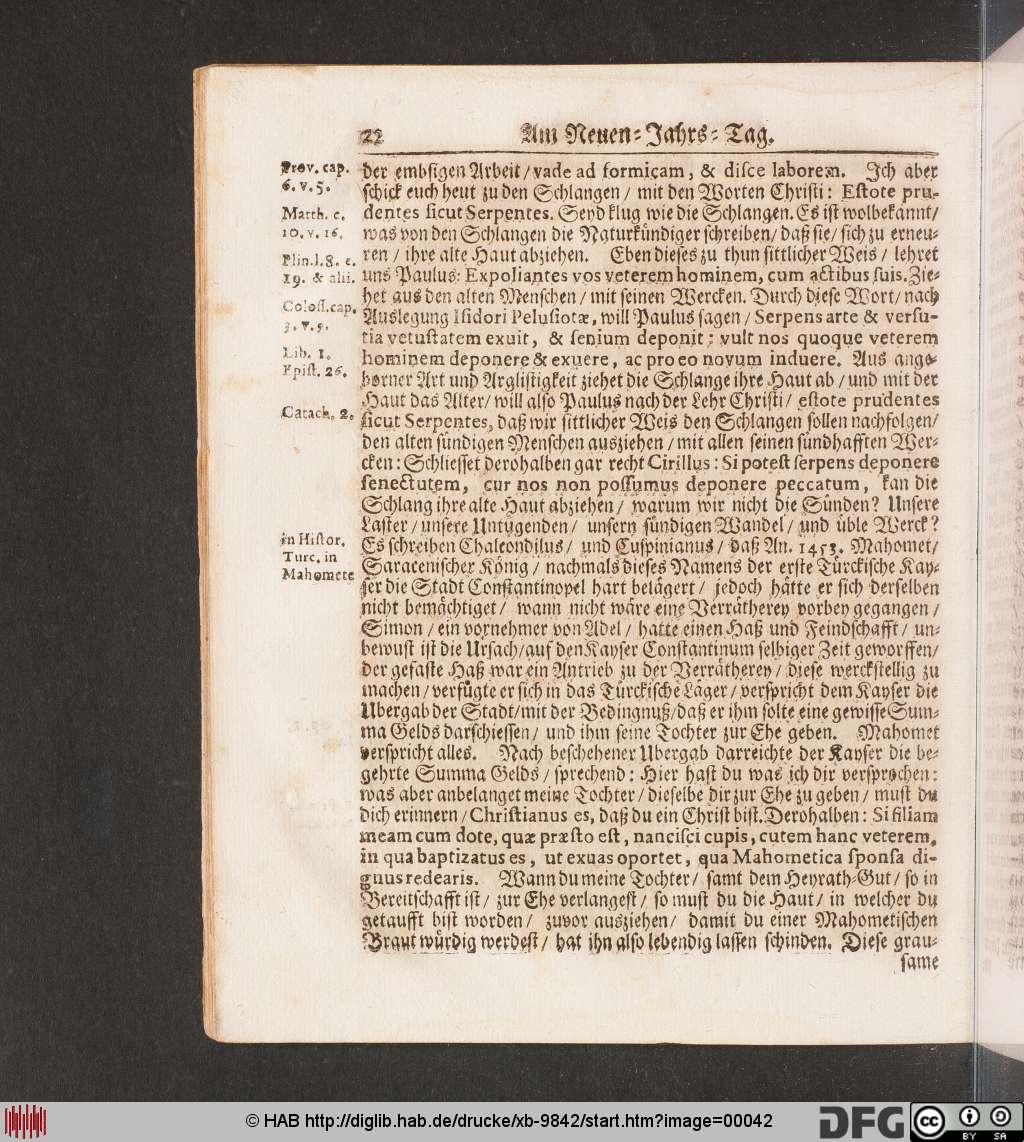 22
Am Neuen-Jahrs-Tag.
Prov. cap.
6. v. 5.
Matth. c.
10. v. 16.
Plin. l. 8. c.
19. & alii.
Coloss. cap.
3. v. 9.
Lib. 1.
Epist. 26.
Catach. 2.
in Histor.
Turc. in
Mahomete
der embsigen Arbeit / vade ad formicam, & disce laborem. Ich aber
schick euch heut zu den Schlangen / mit den Worten Christi: Estote pru-
dentes sicut Serpentes. Seyd klug wie die Schlangen. Es ist wolbekannt/
was von den Schlangen die Naturkündiger schreiben/ daß sie/ sich zu erneu-
ren / ihre alte Haut abziehen. Eben dieses zu thun sittlicher Weis / lehret
uns Paulus: Expoliantes vos veterem hominem, cum actibus suis. Zie-
het aus den alten Menschen / mit seinen Wercken. Durch diese Wort/ nach
Auslegung Isidori Pelusiotæ, will Paulus sagen / Serpens arte & versu-
tia vetustatem exuit, & senium deponit: vult nos quoque veterem
hominem deponere & exuere, ac pro eo novum induere. Aus ange-
borner Art und Arglistigkeit ziehet die Schlange ihre Haut ab / und mit der
Haut das Alter/ will also Paulus nach der Lehr Christi/ estote prudentes
sicut Serpentes, daß wir sittlicher Weis den Schlangen sollen nachfolgen/
den alten sündigen Menschen ausziehen / mit allen seinen sündhafften Wer-
cken: Schliesset derohalben gar recht Cirillus: Si potest serpens deponere
senectutem, cur nos non possumus deponere peccatum, kan die
Schlang ihre alte Haut abziehen / warum wir nicht die Sünden? Unsere
Laster / unsere Untugenden / unsern sündigen Wandel / und üble Werck?
Es schreiben Chalcondilus / und Cuspinianus / daß An. 1453. Mahomet/
Saracenischer König / nachmals dieses Namens der erste Türckische Kay-
ser die Stadt Constantinopel hart belägert / jedoch hätte er sich derselben
nicht bemächtiget / wann nicht wäre eine Verrätherey vorbey gegangen /
Simon / ein vornehmer von Adel / hatte einen Haß und Feindschafft / un-
bewust ist die Ursach/ auf den Kayser Constantinum selbiger Zeit geworffen/
der gefaste Haß war ein Antrieb zu der Verrätherey / diese werckstellig zu
machen / verfügte er sich in das Türckische Läger / verspricht dem Kayser die
Ubergab der Stadt/ mit der Bedingnuß/ daß er ihm solte eine gewisse Sum-
ma Gelds darschiessen / und ihm seine Tochter zur Ehe geben. Mahomet
verspricht alles. Nach beschehener Ubergab darreichte der Kayser die be-
gehrte Summa Gelds / sprechend: Hier hast du was ich dir versprochen:
was aber anbelanget meine Tochter / dieselbe dir zur Ehe zu geben / must du
dich erinnern / Christianus es, daß du ein Christ bist. Derohalben: Si filiam
meam cum dote, quæ præsto est, nancisci cupis, cutem hanc veterem,
in qua baptizatus es, ut exuas oportet, qua Mahometica sponsa di-
gnus redearis. Wann du meine Tochter / samt dem Heyrath-Gut / so in
Bereitschafft ist / zur Ehe verlangest / so must du die Haut / in welcher du
getaufft bist worden / zuvor ausziehen / damit du einer Mahometischen
Braut würdig werdest / hat ihn also lebendig lassen schinden. Diese grau-
same
© HAB http://diglib.hab.de/drucke/xb-9842/start.htm?image=00042
DFG
cc
BY SA